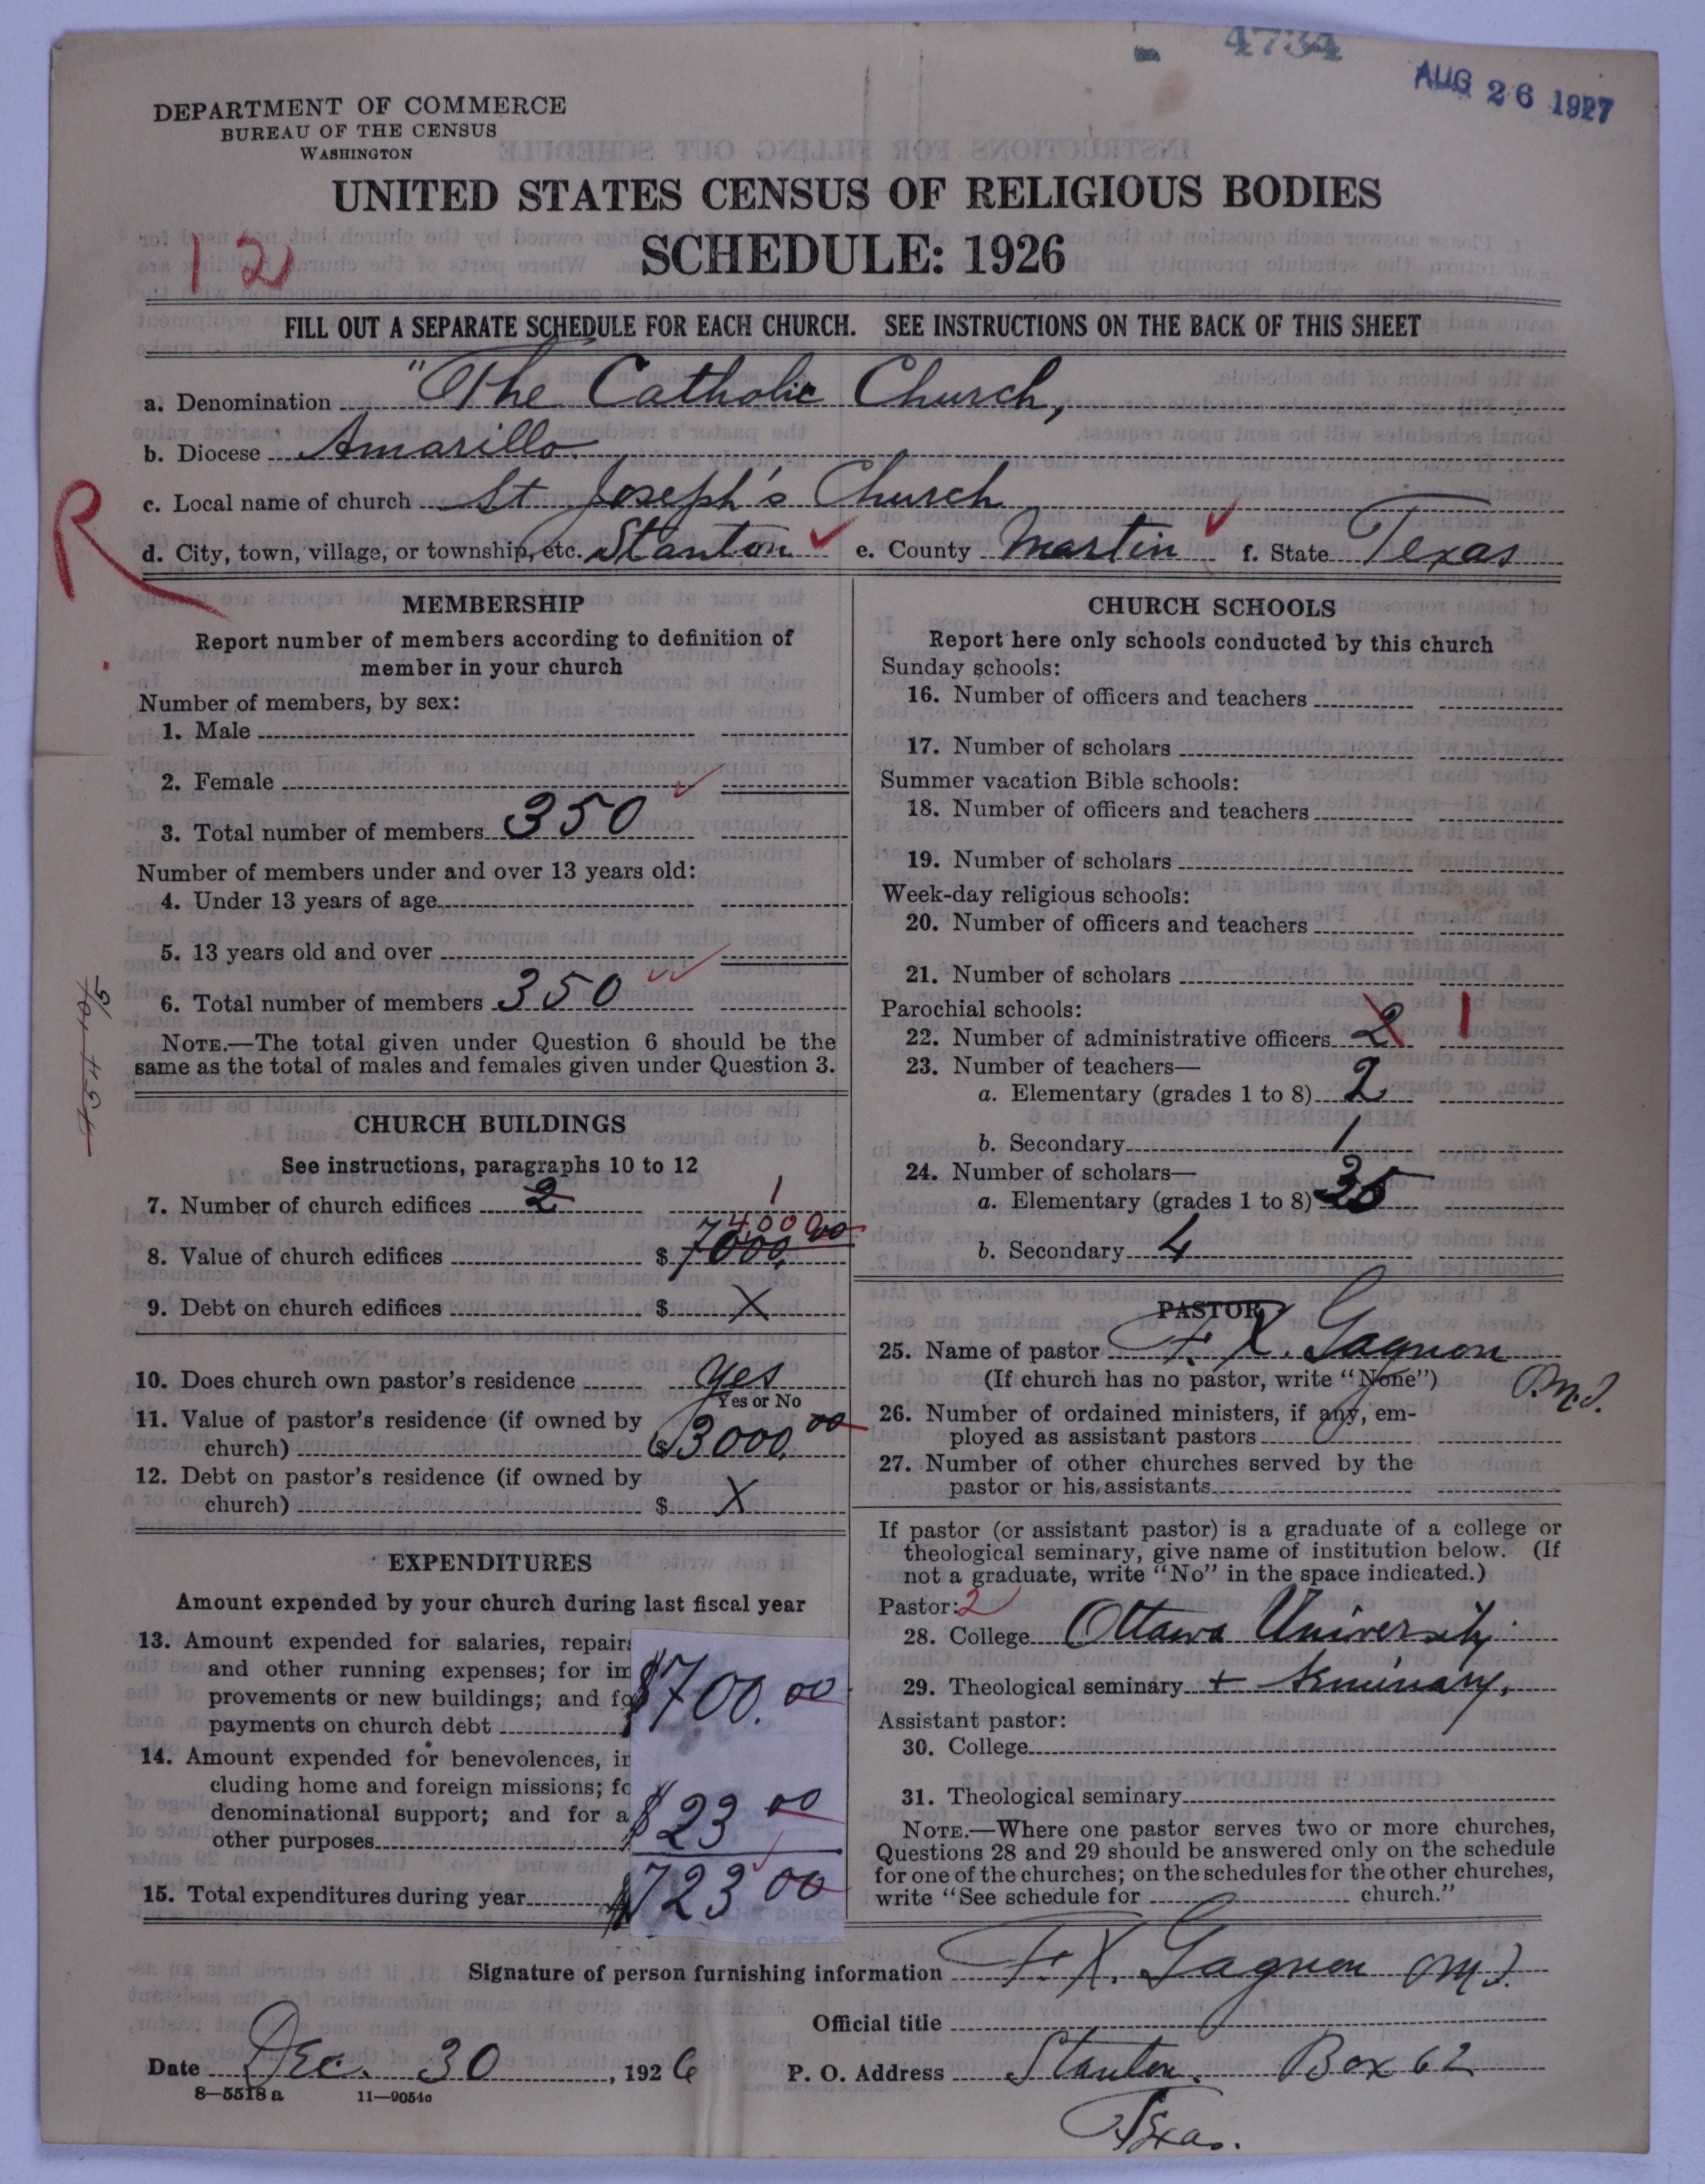 4734
AUG 26 1927
DEPARTMENT OF COMMERCE
BUREAU OF THE CENSUS
WASHINGTON
UNITED STATES CENSUS OF RELIGIOUS BODIES
SCHEDULE: 1926
12
FILL OUT A SEPARATE SCHEDULE FOR EACH CHURCH. SEE INSTRUCTIONS ON THE BACK OF THIS SHEET
a. Denomination "The Catholic Church,
b. Diocese Amarillo.
c. Local name of church St Joseph's Church
R
d. City, town, village, or township, etc. Stanton e. County Martin f. State Texas
MEMBERSHIP
Report number of members according to definition of
member in your church
Number of members, by sex:
1. Male
2. Female
3. Total number of members 350
Number of members under and over 13 years old:
4. Under 13 years of age
5. 13 years old and over
6. Total number of members 350
NOTE.—The total given under Question 6 should be the
same as the total of males and females given under Question 3.
CHURCH BUILDINGS
See instructions, paragraphs 10 to 12
7. Number of church edifices 2 1
4000
8. Value of church edifices $ 7000,00
9. Debt on church edifices $ X
10. Does church own pastor's residence yes
Yes or No
11. Value of pastor's residence (if owned by
church) $ 3000,00
12. Debt on pastor's residence (if owned by
church) $ X
EXPENDITURES
Amount expended by your church during last fiscal year
13. Amount expended for salaries, repairs
and other running expenses; for im
provements or new buildings; and fo
payments on church debt $700.00
14. Amount expended for benevolences, in
cluding home and foreign missions; fo
denominational support; and for a
other purposes $23 00
15. Total expenditures during year $723 00
CHURCH SCHOOLS
Report here only schools conducted by this church
Sunday schools:
16. Number of officers and teachers
17. Number of scholars
Summer vacation Bible schools:
18. Number of officers and teachers
19. Number of scholars
Week-day religious schools:
20. Number of officers and teachers
21. Number of scholars
Parochial schools:
22. Number of administrative officers 2 1
23. Number of teachers—
a. Elementary (grades 1 to 8) 2
b. Secondary 1
24. Number of scholars—
a. Elementary (grades 1 to 8) 35
b. Secondary 4
PASTOR
25. Name of pastor F. X. Gagnon
(If church has no pastor, write "None") O.M.I.
26. Number of ordained ministers, if any, em-
ployed as assistant pastors
27. Number of other churches served by the
pastor or his assistants
If pastor (or assistant pastor) is a graduate of a college or
theological seminary, give name of institution below. (If
not a graduate, write "No" in the space indicated.)
Pastor: 2
28. College Ottawa University
29. Theological seminary + Seminary,
Assistant pastor:
30. College
31. Theological seminary
NOTE.—Where one pastor serves two or more churches,
Questions 28 and 29 should be answered only on the schedule
for one of the churches; on the schedules for the other churches,
write "See schedule for church."
Signature of person furnishing information F. X. Gagnon OMI.
Official title
Date Dec. 30, 1926 P. O. Address Stanton. Box 62
Texas.
8—5518 a 11—9054a